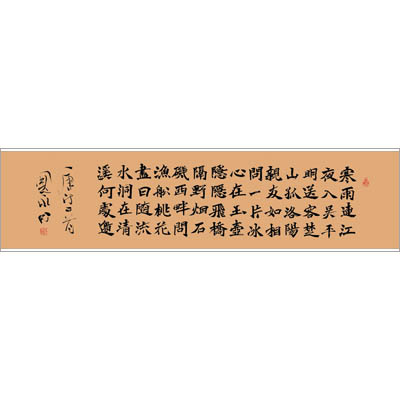 寒雨連江
夜入吳平
明送客楚
山孤洛陽
親友如相
問一片冰
心在玉壺
隱隱飛橋
隔野烟石
磯西畔問
漁船桃花
盡日随流
水洞在清
溪何處邊
唐诗二首